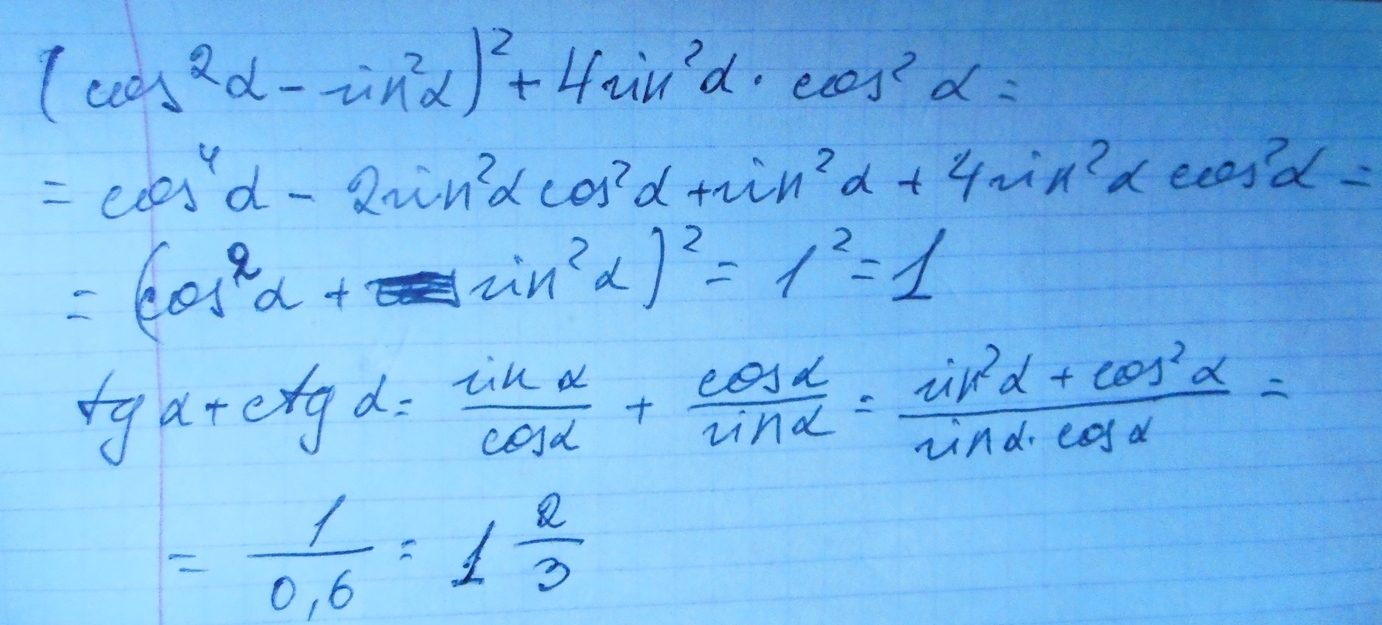 (cos²α - sin²α)² + 4sin²α · cos²α =
= cos⁴α - 2sin²α cos²α + sin²α + 4sin²α cos²α =
= (cos²α + sin²α)² = 1² = 1
tg α + ctg α = sin α / cos α + cos α / sin α = (sin²α + cos²α) / (sin α · cos α) =
= 1 / 0,6 = 1 2/3